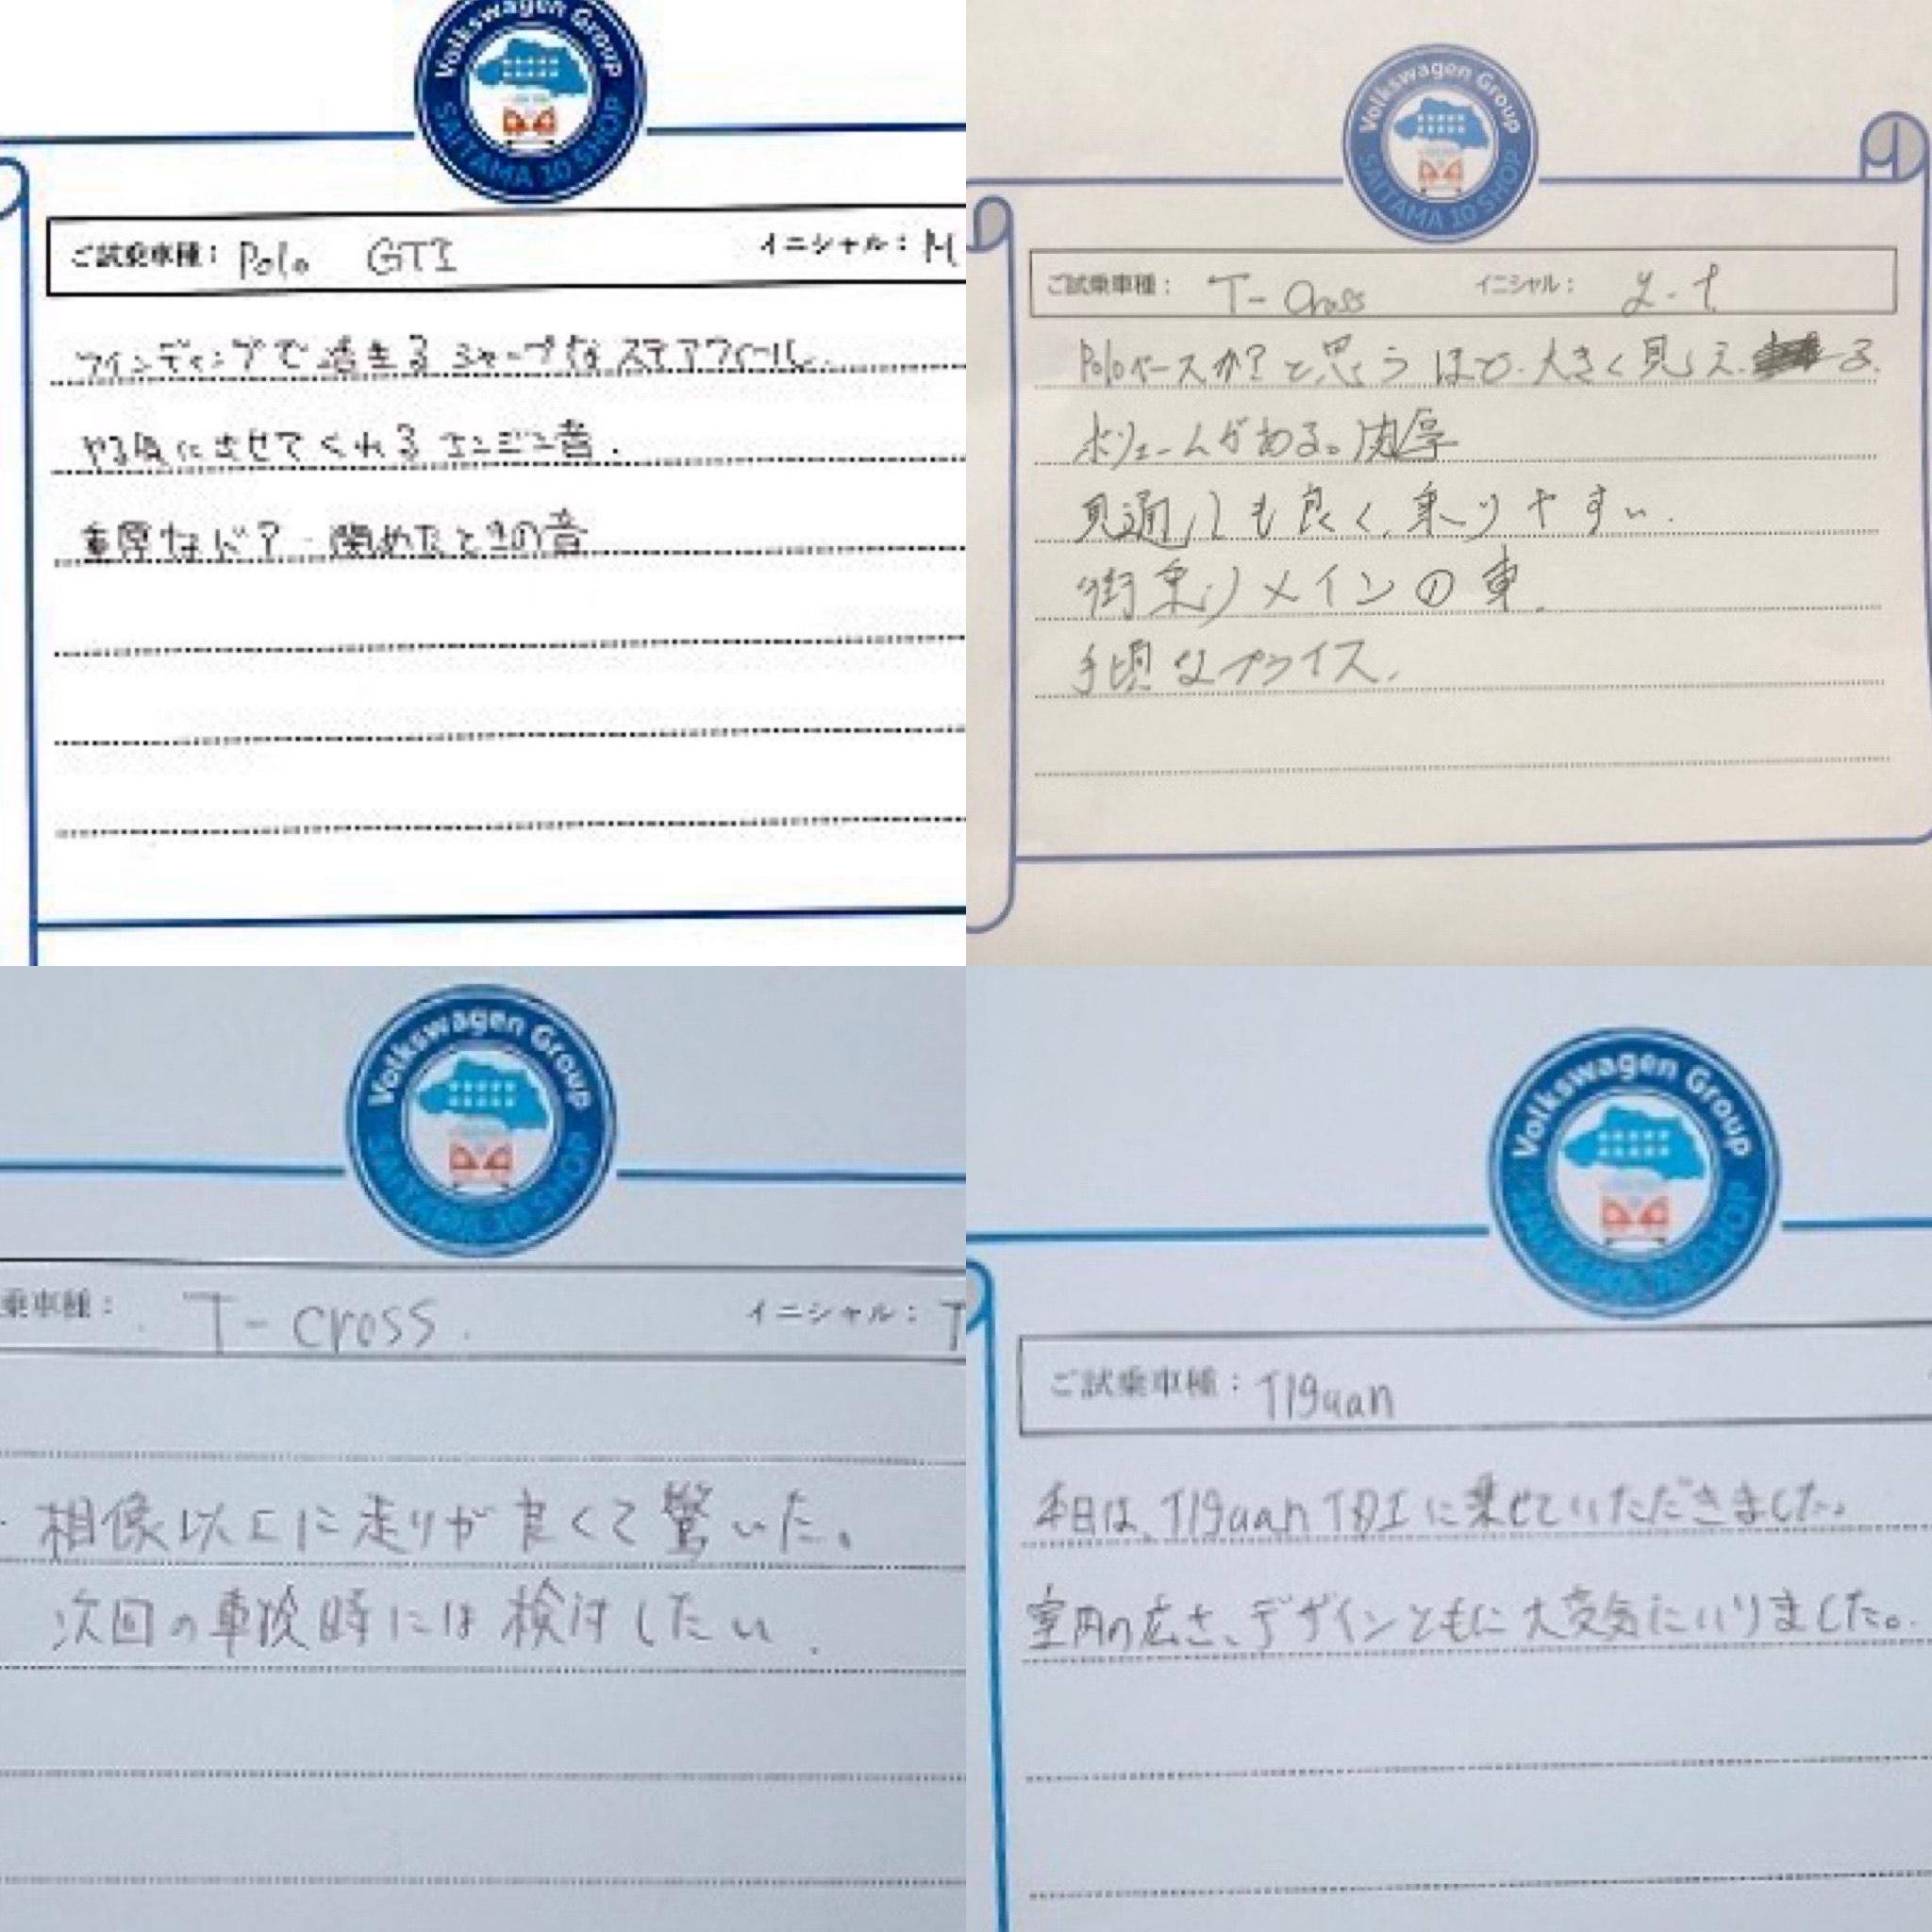 Volkswagen Group
SAITAMA 10 SHOP
ご試乗車種： Polo GTI イニシャル： M
ワインディングで活きるシャープなステアフィール.
やる気にさせてくれるエンジン音.
重厚なドア 閉めたときの音
Volkswagen Group
SAITAMA 10 SHOP
ご試乗車種： T-Cross イニシャル： y.t
Poloベースか？と思うほど、大きく見える.
ボリュームがある。肉厚
見通しも良く、乗りやすい.
街乗りメインの車.
手頃なプライス.
Volkswagen Group
SAITAMA 10 SHOP
乗車種： T-cross. イニシャル： T
・相像以上に走りが良くて驚いた。
次回の車検時には検討したい.
Volkswagen Group
SAITAMA 10 SHOP
ご試乗車種： TIguan
本日は、TIguan TDIに乗せていただきました。
室内の広さ、デザインともに大変気にいりました。